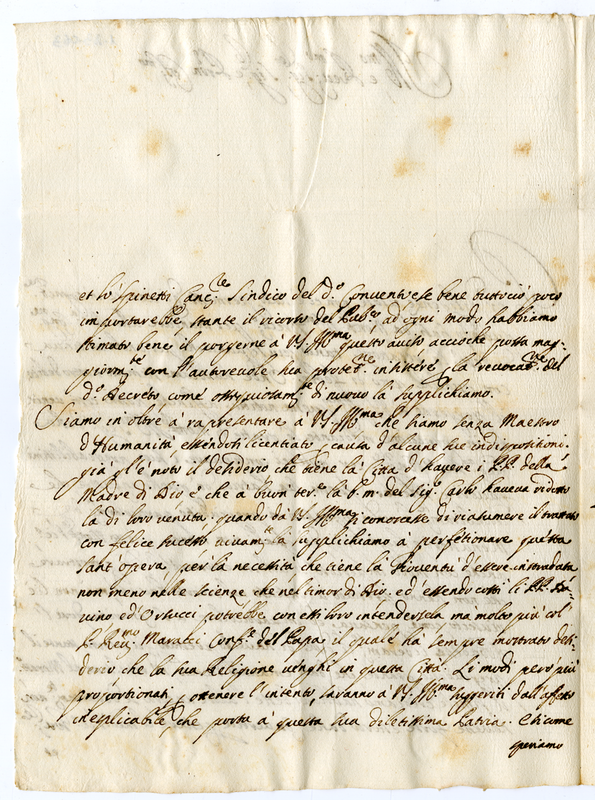 et lo Spinetti Canc.re Sindico del d.o Convento, e se bene tuttociò poco
importarebbe stante il ricorso del Pub.co ad ogni modo habbiamo
stimato bene il porgerne à VS. Ill.ma questo aviso acciochè possa mag-
giorm.te con l'autorevole sua protet.ne insistere p la revocat.ne del
d.o Decreto, come ossequiosam.te di nuovo la supplichiamo.
Siamo in oltre à rapresentare à VS. Ill.ma che siamo senza Maestro
d'Humanità, essendosi licentiato p causa d'alcune sue indispositioni.
già gl'è noto il desiderio che tiene la Città d'havere i PP. della
Madre di Dio e che à buon ter.e la b. m. del Sig.r Carlo haveva ridotto
la di loro venuta, quando da VS. Ill.ma si conoscesse di riassumere il trattato
con felice successo vivam.te la supplichiamo à perfetionare questa
sant'opera, per la necessità che tiene la Gioventù d'essere instradata
non meno nelle scienze che nel timor di Dio. ed essendo costì li PP.
vino ed Ortucci potrebbe con essi loro intendersela ma molto più col
P. Rev.mo Maracci Conf.re del Papa il quale hà sempre mostrato desi-
derio che la sua Religione venghi in questa Città. Li modi però più
proportionati p ottenere l'intento, saranno à VS. Ill.ma suggeriti dall'affetto
inesplicabile, che porta à questa sua dilettissima Patria. E sicome
speriamo